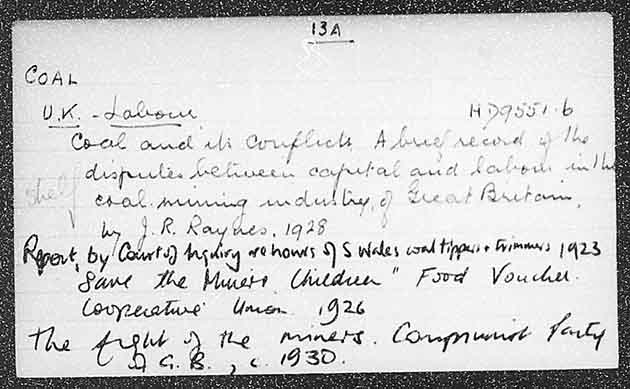 13A
COAL
U.K. - Labour HD9551.6
Coal and its conflicts. A brief record of the
disputes between capital and labour in the
shelf coal mining industry of Great Britain,
by J. R. Raynes, 1928
Report by Court of Inquiry re hours of S Wales coal tippers & trimmers 1923
"Save the Miners Children" Food Voucher.
Cooperative Union 1926
The fight of the miners. Communist Party
of G.B., c. 1930.